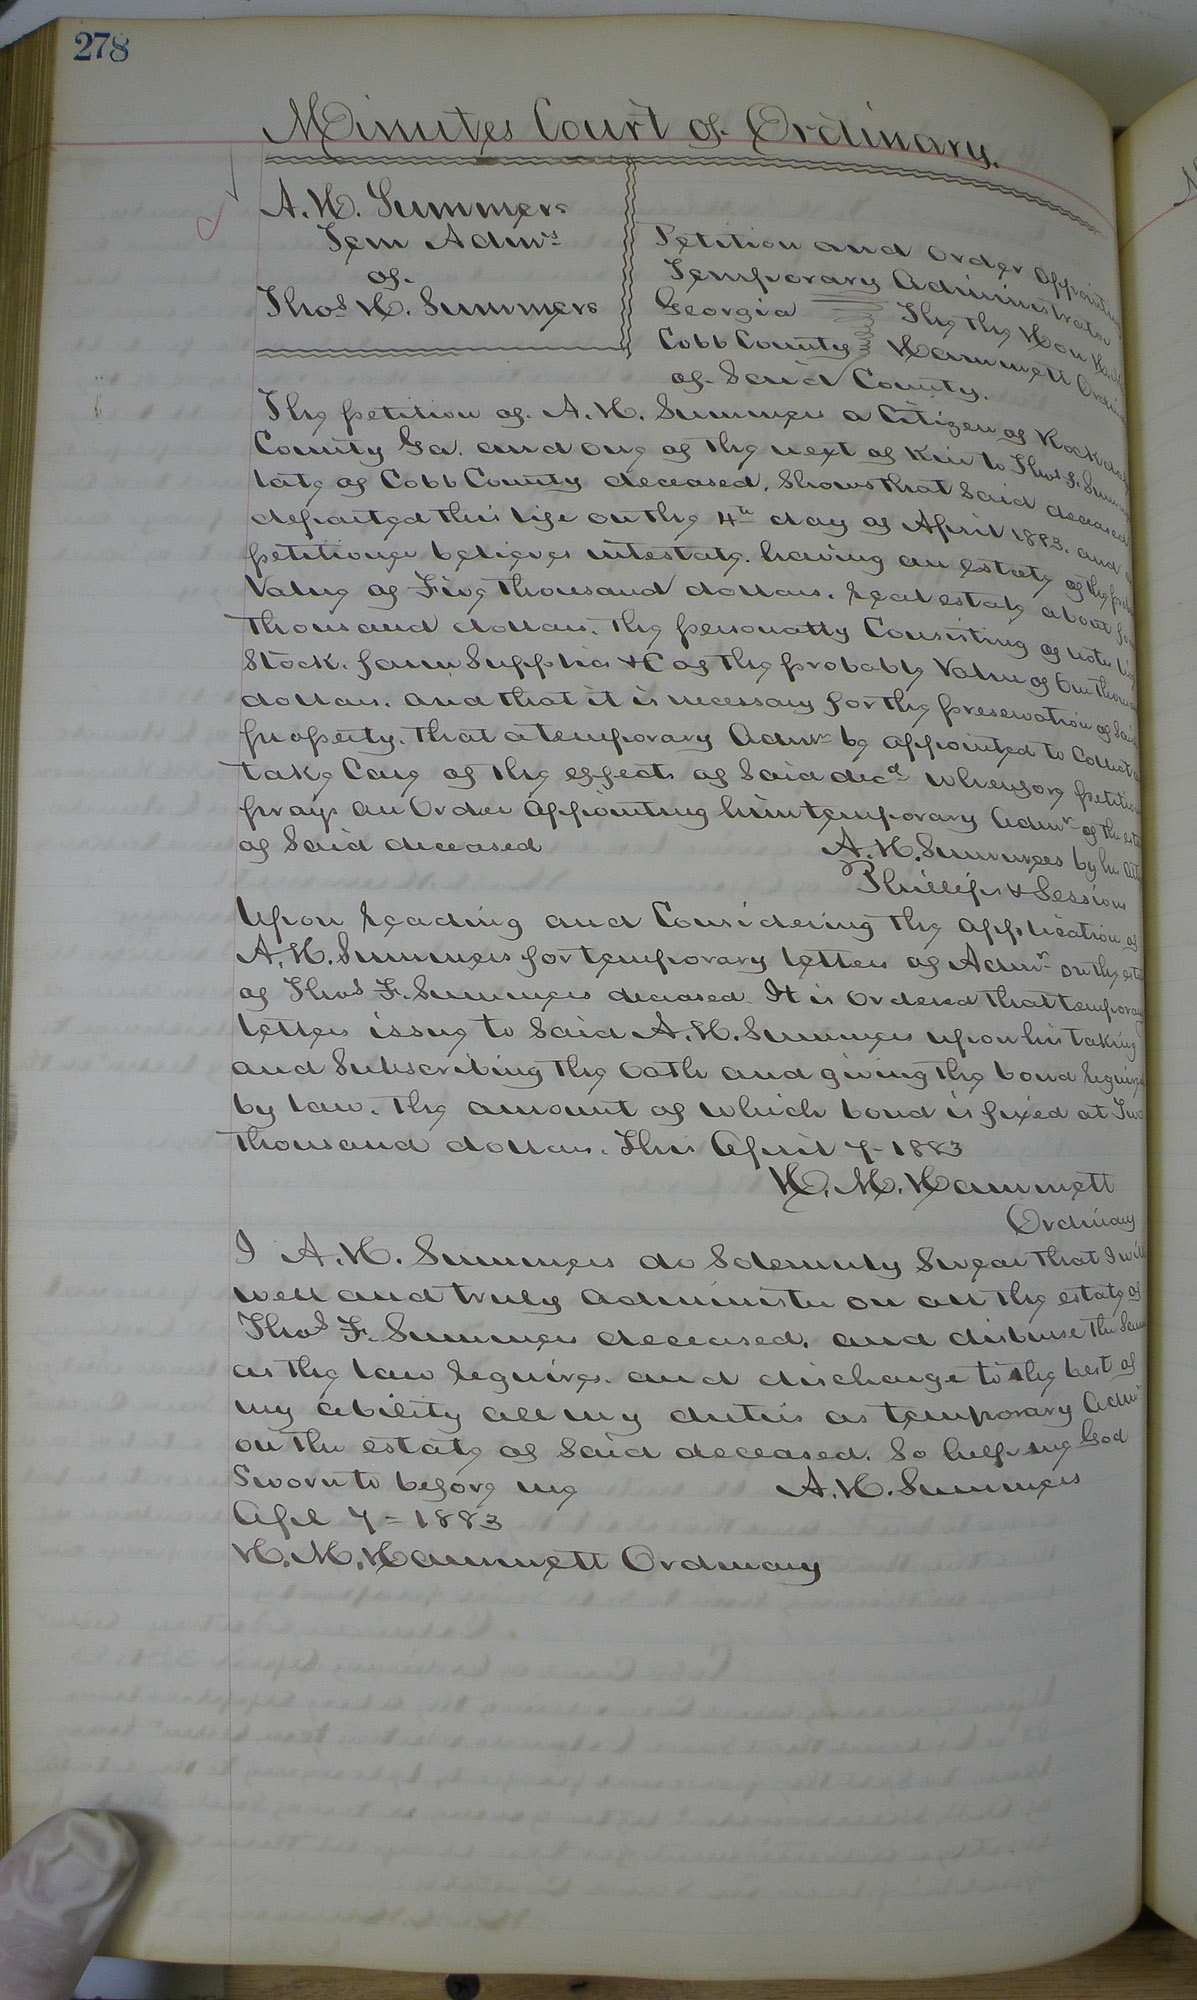 278
Minutes Court of Ordinary.
A. H. Summers
Tem Admrs
of
Thos H. Summers
Petition and Order Appointing
Temporary Administrator
Georgia The the Hon
Cobb County Hammett Ordi
of Said County.
The petition of A. H. Summers a Citizen of Rockdale
County Ga. and one of the next of Kin to Thos F. Summ
late of Cobb County deceased. Shows that Said deceased
departed this life on the 4th day of April 1883. and
petitioner believes intestate. having an estate of the prob
Value of Five thousand dollars. real estate about
thousand dollars. the personalty Consisting of notes
Stock. farm Supplies &C of the probable Value of One thous
dollars. and that it is necessary for the preservation of Said
property. that a temporary Admr be appointed to Collect
take Care of the effects of Said decd wherefore petition
prays an Order appointing him temporary Admr of the est
of Said deceased
A. H. Summers by his att
Phillips & Sessions
Upon reading and Considering the application of
A. H. Summers for temporary letters of Admr on the est
of Thos F. Summers deceased. It is Ordered that temporary
letters issue to Said A. H. Summers upon his taking
and Subscribing the oath and giving the bond require
by law. the amount of which bond is fixed at Two
thousand dollars. This April 7- 1883
H. M. Hammett
Ordinary
I A. H. Summers do Solemnly Swear that I will
well and truly administer on all the estate of
Thos F. Summers deceased. and disburse the Same
as the law requires. and discharge to the best of
my ability all my duties as temporary Admr
on the estate of Said deceased. So help me God
Sworn to before me A. H. Summers
Apl 7 = 1883
H. M. Hammett Ordinary